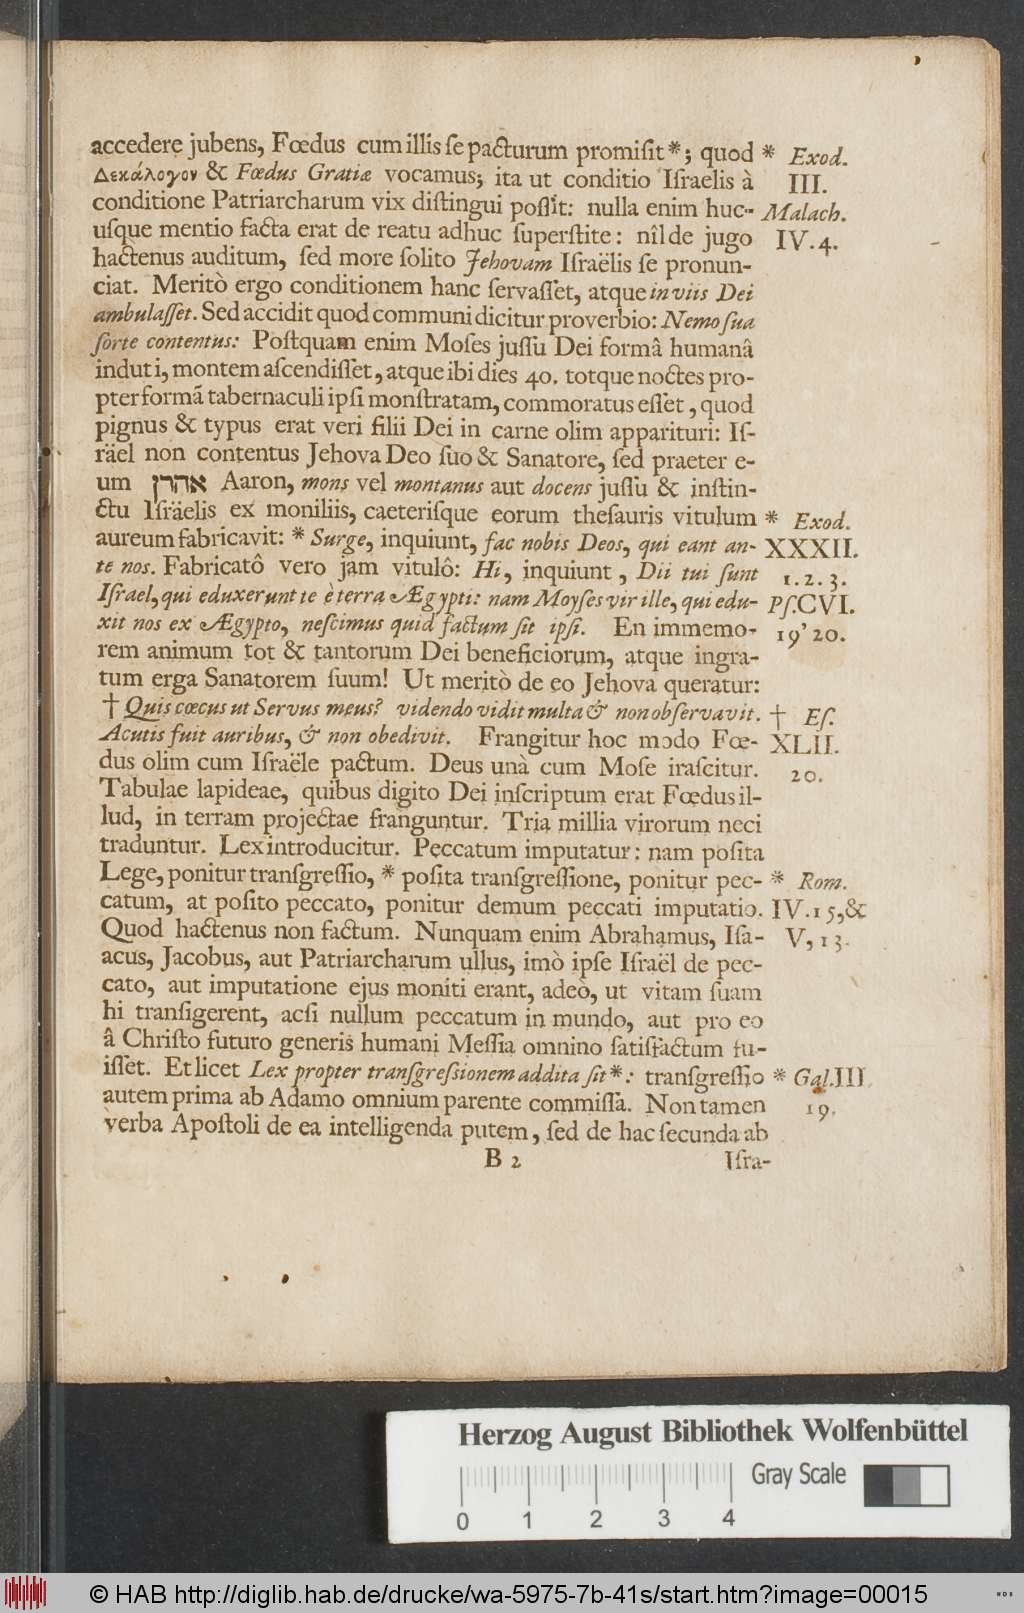 accedere jubens, Fœdus cum illis ſe pacturum promiſit*; quod * Exod.
Δεκάλογον & Fœdus Gratiæ vocamus; ita ut conditio Iſraelis à III.
conditione Patriarcharum vix diſtingui poſſit: nulla enim huc- Malach.
uſque mentio facta erat de reatu adhuc ſuperſtite: nîl de jugo IV. 4.
hactenus auditum, ſed more ſolito Jehovam Iſraëlis ſe pronun-
ciat. Meritò ergo conditionem hanc ſervaſſet, atque in viis Dei
ambulaſſet. Sed accidit quod communi dicitur proverbio: Nemo ſua
ſorte contentus: Poſtquam enim Moſes juſſu Dei formâ humanâ
induti, montem aſcendiſſet, atque ibi dies 40. totque noctes pro-
pter formã tabernaculi ipſi monſtratam, commoratus eſſet, quod
pignus & typus erat veri filii Dei in carne olim apparituri: Iſ-
räel non contentus Jehova Deo ſuo & Sanatore, ſed praeter e-
um אהרן Aaron, mons vel montanus aut docens juſſu & inſtin-
ctu Iſräelis ex moniliis, caeteriſque eorum theſauris vitulum * Exod.
aureum fabricavit: * Surge, inquiunt, fac nobis Deos, qui eant an- XXXII.
te nos. Fabricatô vero jam vitulô: Hi, inquiunt, Dii tui ſunt 1. 2. 3.
Iſrael, qui eduxerunt te è terra Ægypti: nam Moyſes vir ille, qui edu- Pſ. CVI.
xit nos ex Ægypto, neſcimus quid factum ſit ipſi. En immemo- 19' 20.
rem animum tot & tantorum Dei beneficiorum, atque ingra-
tum erga Sanatorem ſuum! Ut meritò de eo Jehova queratur:
† Quis cœcus ut Servus meus? videndo vidit multa & non obſervavit. † Eſ.
Acutis fuit auribus, & non obedivit. Frangitur hoc modo Fœ- XLII.
dus olim cum Iſraële pactum. Deus unà cum Moſe iraſcitur. 20.
Tabulae lapideae, quibus digito Dei inſcriptum erat Fœdus il-
lud, in terram projectae franguntur. Tria millia virorum neci
traduntur. Lex introducitur. Peccatum imputatur: nam poſita
Lege, ponitur tranſgreſſio, * poſita tranſgreſſione, ponitur pec- * Rom.
catum, at poſito peccato, ponitur demum peccati imputatio. IV. 15, &
Quod hactenus non factum. Nunquam enim Abrahamus, Iſa- V, 13.
acus, Jacobus, aut Patriarcharum ullus, imò ipſe Iſraël de pec-
cato, aut imputatione ejus moniti erant, adeò, ut vitam ſuam
hi tranſigerent, acſi nullum peccatum in mundo, aut pro eo
â Chriſto futuro generis humani Meſſia omnino ſatisfactum fu-
iſſet. Et licet Lex propter tranſgreſsionem addita ſit*: tranſgreſſio * Gal. III.
autem prima ab Adamo omnium parente commiſſa. Non tamen 19.
verba Apoſtoli de ea intelligenda putem, ſed de hac ſecunda ab
B 2 Iſra-
Herzog August Bibliothek Wolfenbüttel
Gray Scale
0 1 2 3 4
© HAB http://diglib.hab.de/drucke/wa-5975-7b-41s/start.htm?image=00015